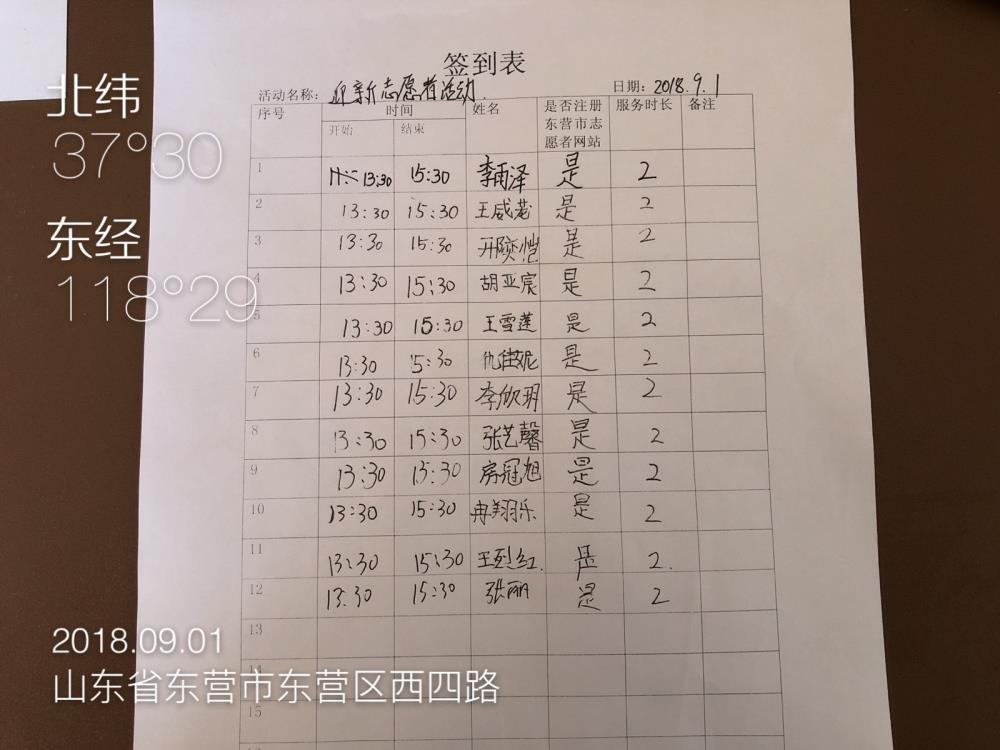 签到表
活动名称：迎新志愿者活动. 日期：2018.9.1
序号 时间 姓名 是否注册东营市志愿者网站 服务时长 备注
开始 结束
1 13:30 15:30 李雨泽 是 2
2 13:30 15:30 王威 是 2
3 13:30 15:30 是 2
4 13:30 15:30 胡亚宸 是 2
5 13:30 15:30 王雪莲 是 2
6 13:30 15:30 仇佳妮 是 2
7 13:30 15:30 李欣玥 是 2
8 13:30 15:30 张艺馨 是 2
9 13:30 15:30 房冠旭 是 2
10 13:30 15:30 冉翔乐 是 2
11 13:30 15:30 王烈红. 是 2.
12 13:30 15:30 张丽 是 2
13
14
15
北纬
37°30
东经
118°29
2018.09.01
山东省东营市东营区西四路